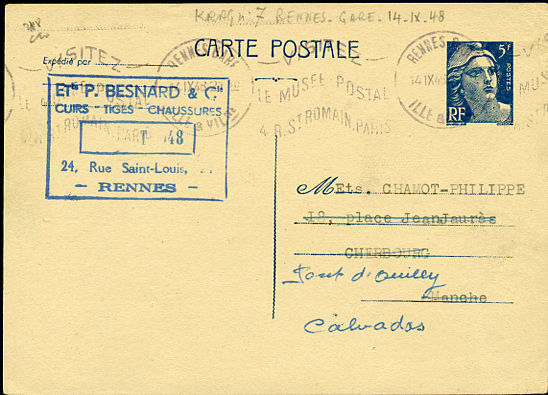 KRAG 7 RENNES-GARE. 14.IX.48
CARTE POSTALE
Expédié par
VISITEZ
LE MUSEE POSTAL
4 R. ST ROMAIN, PARIS
RENNES GARE
14 IX 48
ILLE & VILAINE
5F
POSTES
RF
Ets P. BESNARD & Cie
CUIRS - TIGES - CHAUSSURES
48
24, Rue Saint-Louis, 24
- RENNES -
Mets. CHAMOT-PHILIPPE
18, place JeanJaurès
CHERBOURG
Pont d'Ouilly
Manche
Calvados